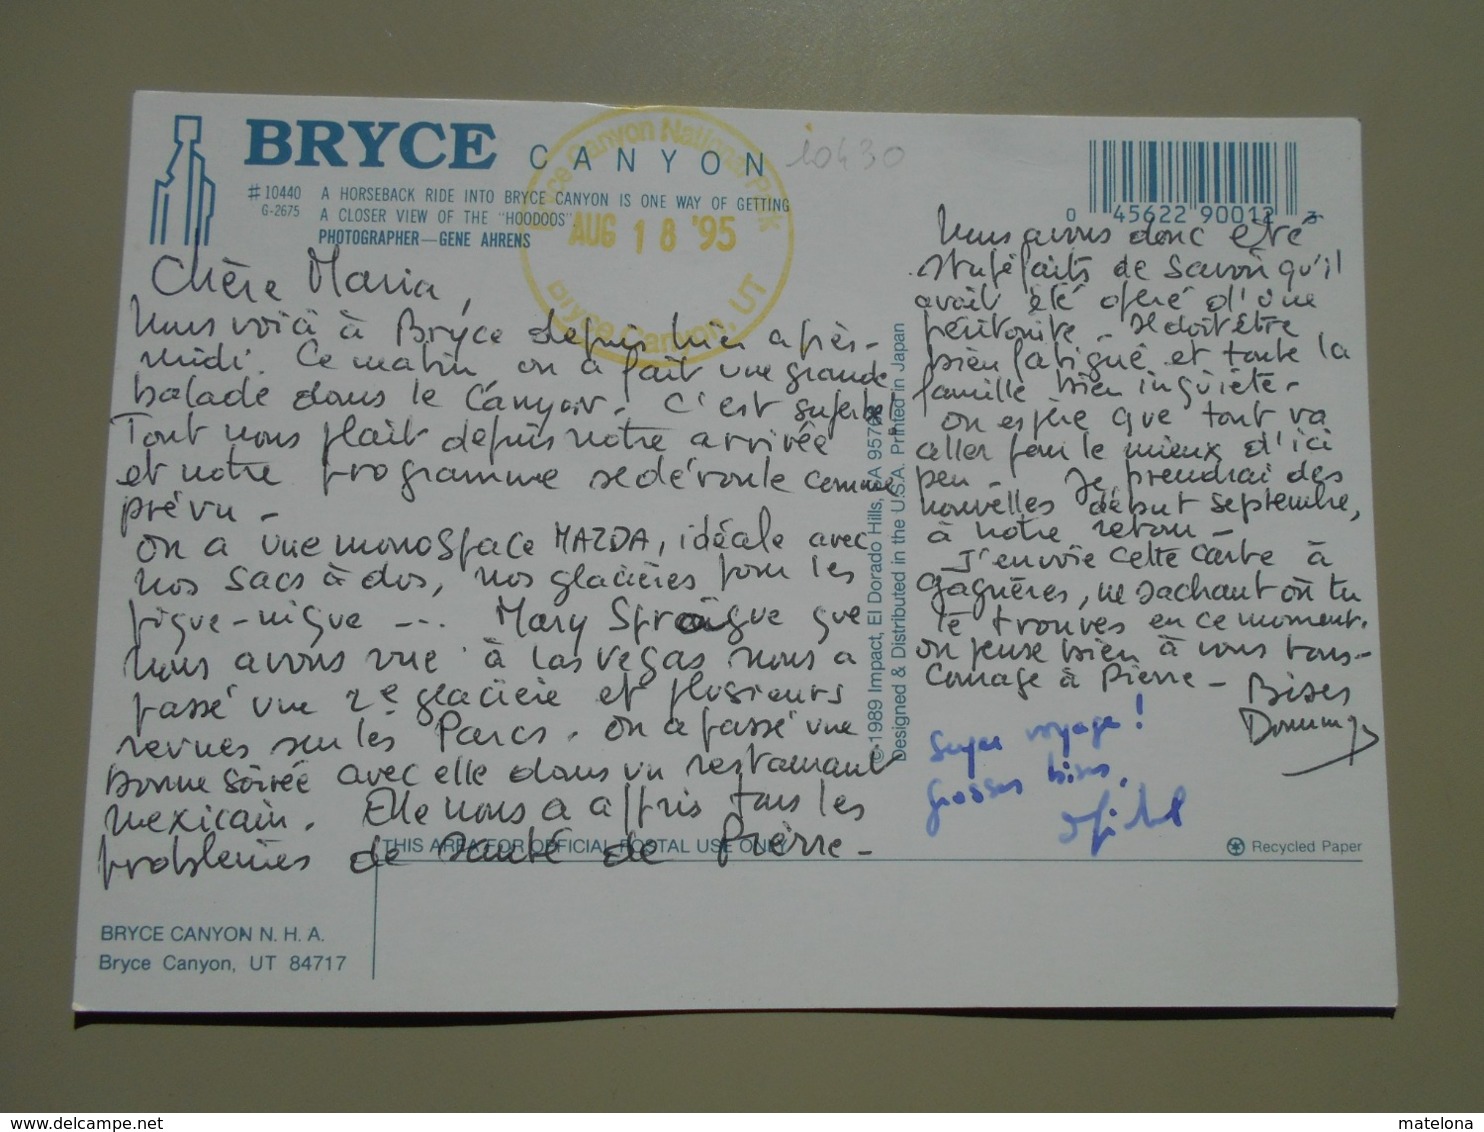 BRYCE CANYON
10430
#10440 A HORSEBACK RIDE INTO BRYCE CANYON IS ONE WAY OF GETTING
G-2675 A CLOSER VIEW OF THE "HOODOOS".
PHOTOGRAPHER—GENE AHRENS
Bryce Canyon National Park
AUG 18 '95
Bryce Canyon, UT
0 45622 90012 3
Chère Maria,
Nous voici à Bryce depuis hier après-
midi. Ce matin on a fait une grande
balade dans le Canyon. C'est superbe!
Tout nous plait depuis notre arrivée
et notre programme se déroule comme
prévu -
On a une monospace MAZDA, idéale avec
nos sacs à dos, nos glacières pour les
pique-nique --.. Mary Sprague que
nous avons vue à Las Vegas nous a
passé une 2e glacière et plusieurs
revues sur les Parcs. On a passé une
bonne soirée avec elle dans un restaurant
mexicain. Elle nous a appris tous les
problèmes de santé de Pierre -
Nous avons donc été
stupéfaits de savoir qu'il
avait été opéré d'une
péritonite - Il doit être
bien fatigué et toute la
famille bien inquiète -
On espère que tout va
aller pour le mieux d'ici
peu - Je prendrai des
nouvelles début septembre,
à notre retour -
J'envoie cette carte à
Gagnères, ne sachant où tu
te trouves en ce moment.
On pense bien à vous tous -
Courage à Pierre - Bises
Super voyage!
Grosses bises,
© 1989 Impact, El Dorado Hills, CA 95762
Designed & Distributed in the U.S.A. Printed in Japan
THIS AREA FOR OFFICIAL POSTAL USE ONLY
Recycled Paper
BRYCE CANYON N. H. A.
Bryce Canyon, UT 84717
matelona